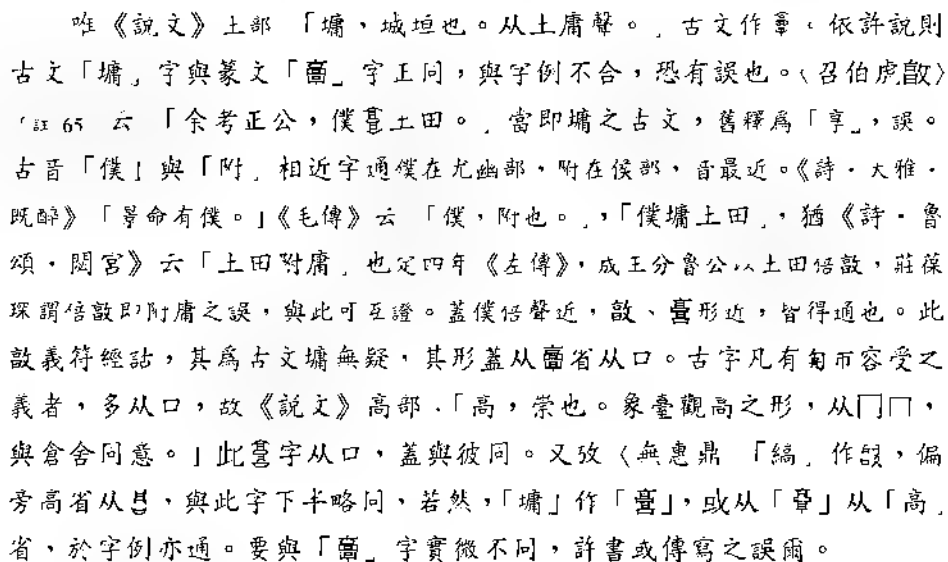 唯《說文》土部「墉，城垣也。从土庸聲。」古文作𩫏。依許說則
古文「墉」字與篆文「𩫏」字正同，與字例不合，恐有誤也。〈召伯虎敦〉
〔註 65〕云「余考正公，僕𩫖土田。」當即墉之古文，舊釋爲「享」，誤。
古音「僕」與「附」相近字通僕在尤幽部，附在侯部，音最近。《詩．大雅．
既醉》「景命有僕。」《毛傳》云「僕，附也。」，「僕墉土田」，猶《詩．魯
頌．閟宮》云「土田附庸」也定四年《左傳》，成王分魯公以土田倍敦，莊葆
琛謂倍敦即附庸之誤，與此可互證。蓋僕倍聲近，敦、𩫖形近，皆得通也。此
敦義符經詁，其爲古文墉無疑，其形蓋从𩫏省从口。古字凡有匌帀容受之
義者，多从口，故《說文》高部．「高，崇也。象臺觀高之形，从冂口，
與倉舍同意。」此𩫖字从口，蓋與彼同。又攷〈無惠鼎「縞」作，偏
旁高省从，與此字下半略同，若然，「墉」作「𩫖」，或从「」从「高」
省，於字例亦通。要與「𩫏」字實微不同，許書或傳寫之誤爾。